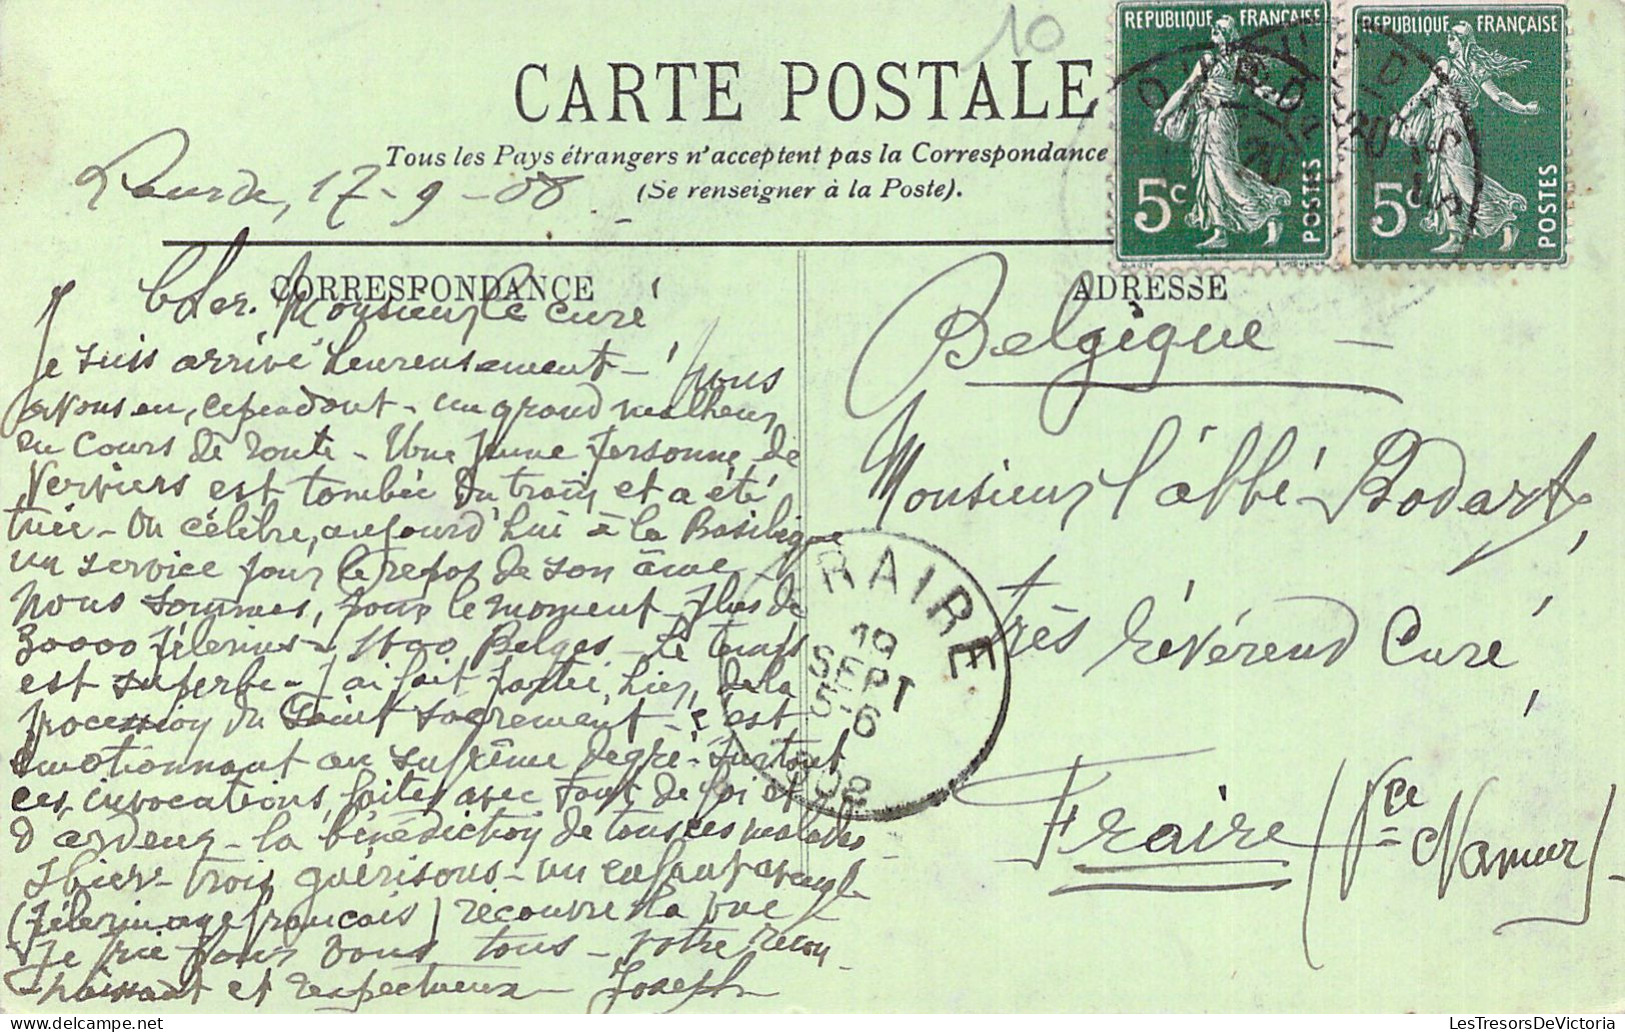 10
RÉPUBLIQUE FRANÇAISE
RÉPUBLIQUE FRANÇAISE
5c POSTES
5c POSTES
CARTE POSTALE
Tous les Pays étrangers n'acceptent pas la Correspondance
(Se renseigner à la Poste).
17-9-08
CORRESPONDANCE
Monsieur le curé
Je suis arrivé heureusement – Nous
avons eu, cependant – un grand malheur
au cours de route – Une jeune personne de
Verviers est tombée du train et a été
tuée – On célèbre, aujourd'hui à la Basilique
un service pour le repos de son âme –
Nous sommes, pour le moment plus de
30000 pèlerins – Belges – Le temps
est superbe – J'ai fait partie, hier, de la
procession du Saint Sacrement – c'est
émotionnant au suprême degré – surtout
ces invocations, faites avec tant de foi et
d'ardeur – la bénédiction de tous ces malades
Hier – trois guérisons – un enfant aveugle
(pèlerinage français) recouvre la vue
Je prie pour vous tous – votre recon-
naissant et respectueux – Joseph
ADRESSE
Belgique –
Monsieur l'abbé Bodart,
très révérend Curé,
Fraire (Nce Namur)
FRAIRE
19
SEPT
5-6
LesTresorsDeVictoria.com